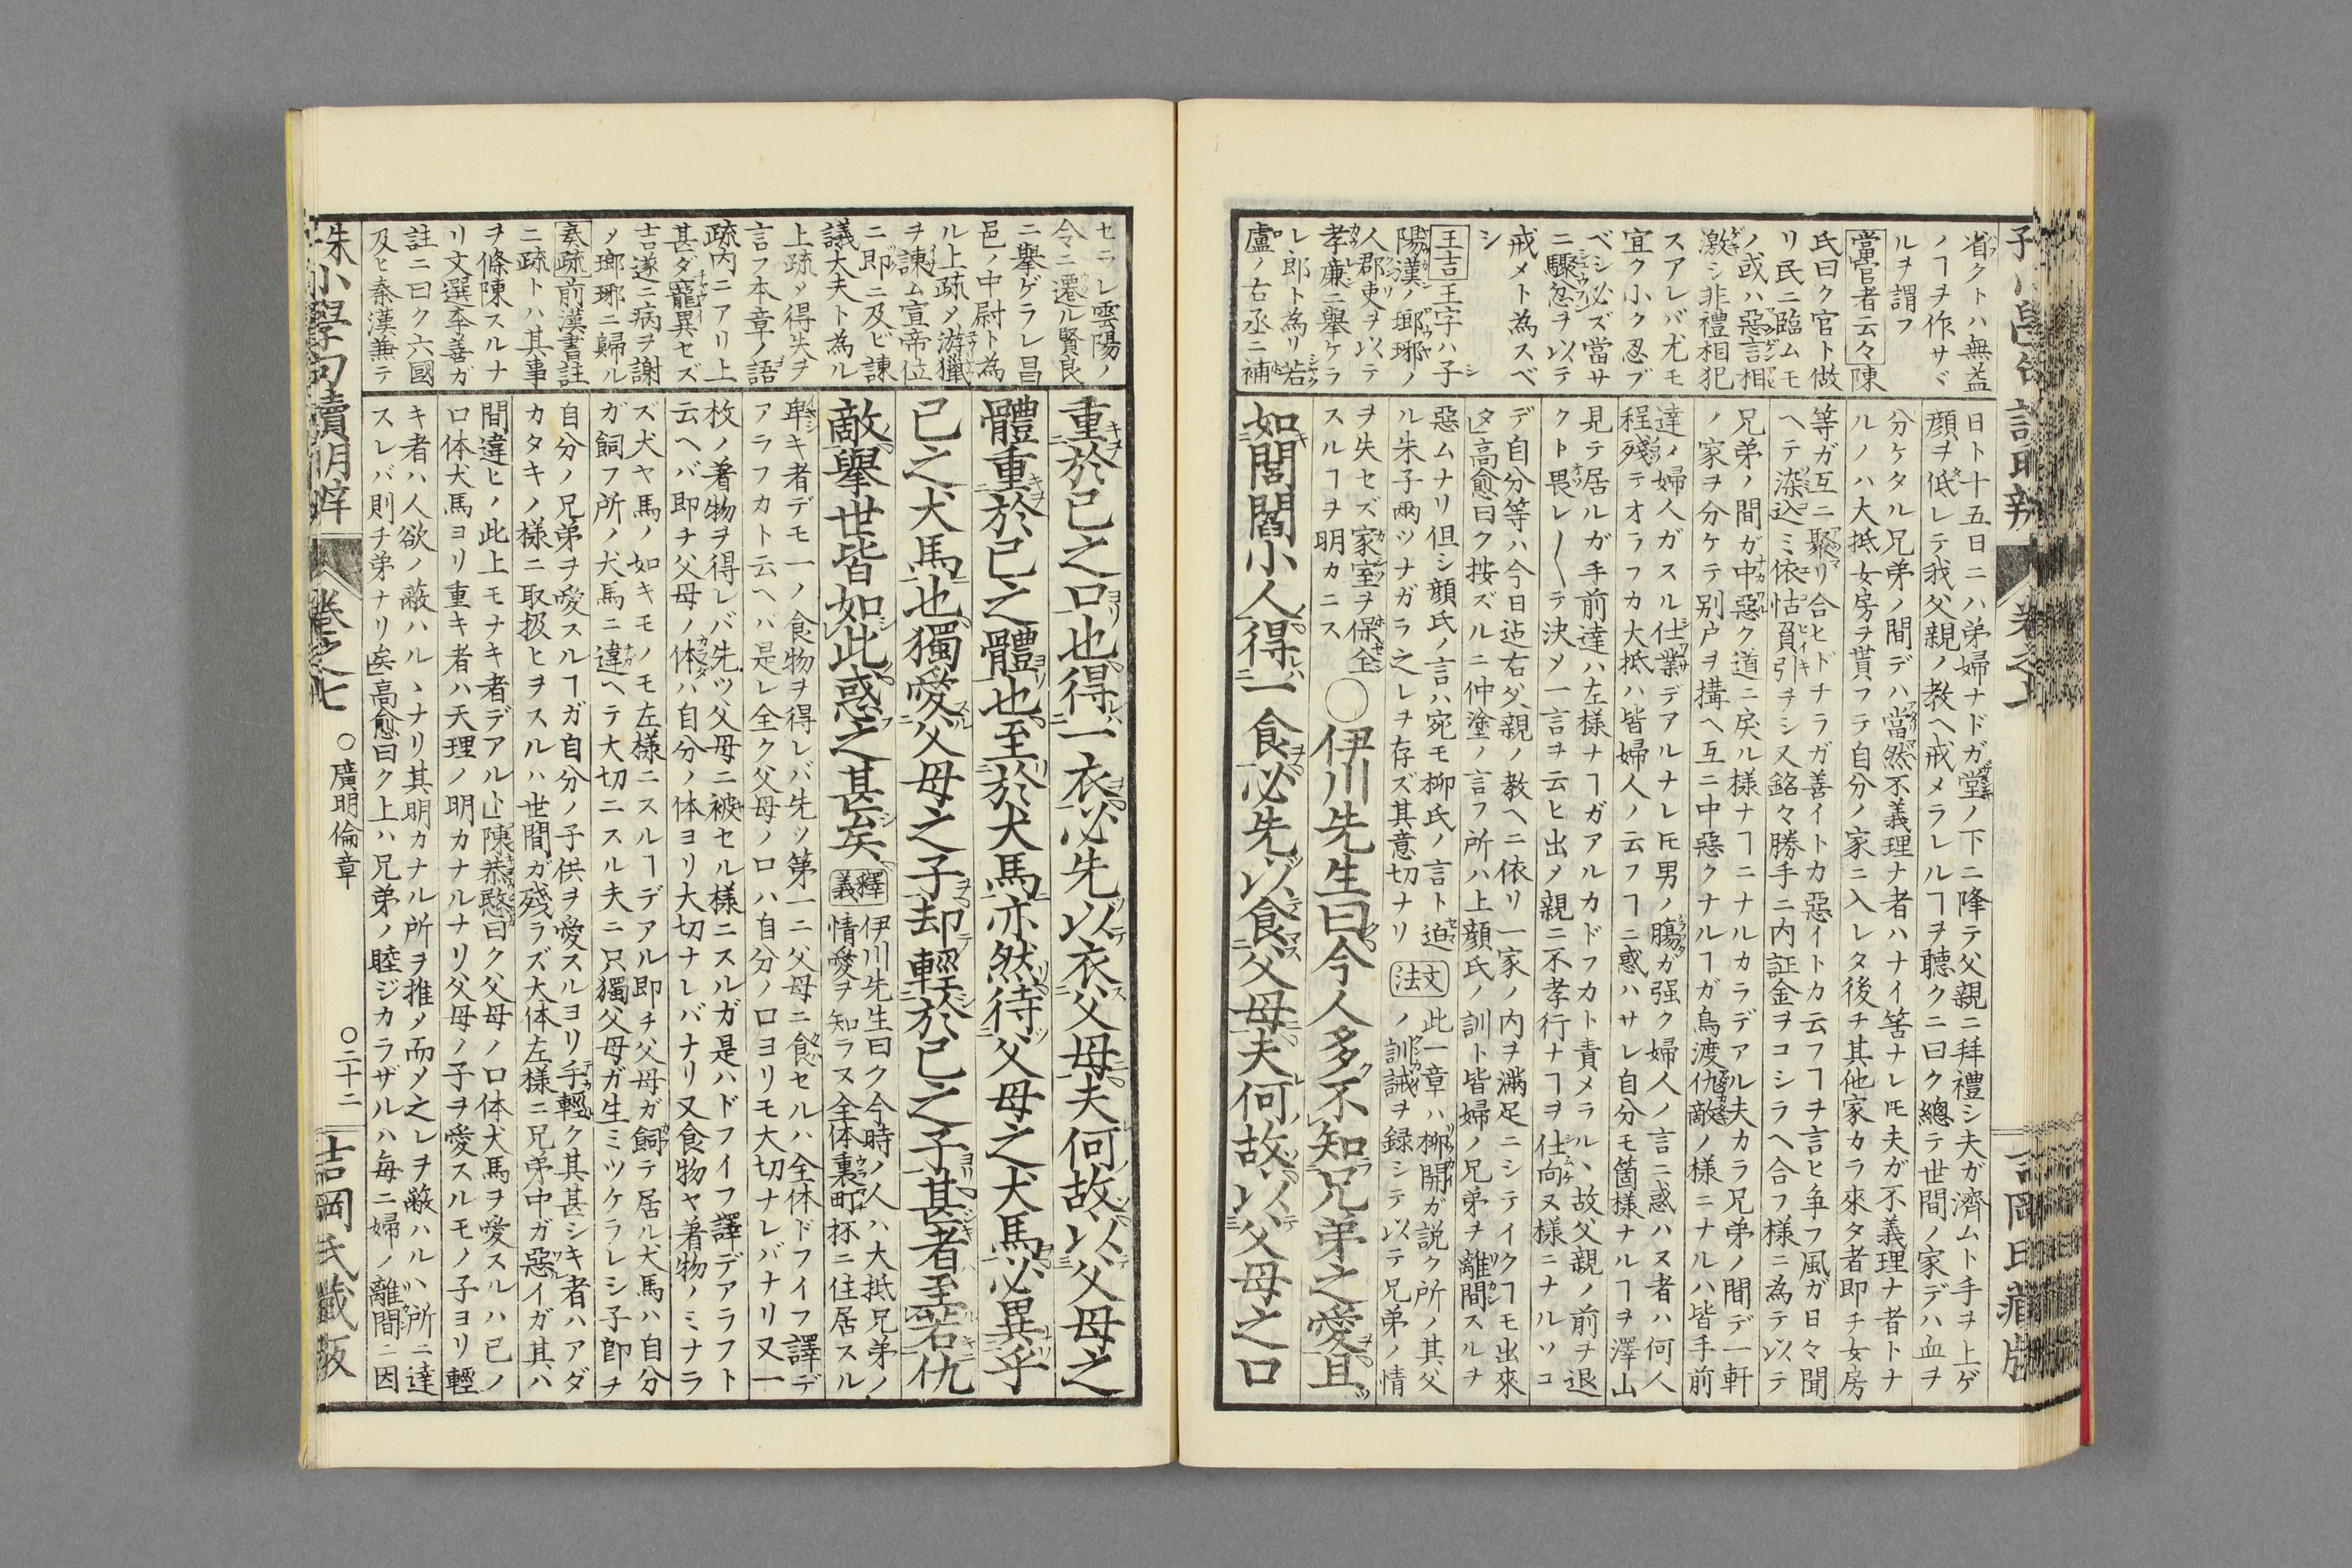 省クトハ無益
ノヿヲ作サヾ
ルヲ謂フ
當官者云々陳
氏曰ク官ト做
リ民ニ臨ムモ
ノ或ハ惡言相
激シ非禮相犯
スアレバ尤モ
宜ク小ク忍ブ
ベシ必ズ當サ
ニ驟忿ヲ以テ
戒メト為スベ
シ
王吉王字ハ子
陽漢ノ瑯琊ノ
人郡吏ヲ以テ
孝廉ニ擧ケラ
レ郎ト為リ若
盧ノ右丞ニ補
日ト十五日ニハ弟婦ナドガ堂ノ下ニ降テ父親ニ拜禮シ夫ガ濟ムト手ヲ上ゲ
顔ヲ低レテ我父親ノ教ヘ戒メラレルヿヲ聽クニ曰ク總テ世間ノ家デハ血ヲ
分ケタル兄弟ノ間デハ當然不義理ナ者ハナイ筈ナレ𪜈夫ガ不義理ナ者トナ
ルノハ大抵女房ヲ貰フテ自分ノ家ニ入レタ後チ其他家カラ來タ者即チ女房
等ガ互ニ聚リ合ヒドチラガ善イトカ惡イトカ云フヿヲ言ヒ争フ風ガ日々聞
ヘテ染込ミ依怙贔引ヲシ又銘々勝手ニ内証金ヲコシラヘ合フ様ニ為テ以テ
兄弟ノ間ガ中惡ク道ニ戻ル様ナヿニナルカラデアル夫カラ兄弟ノ間デ一軒
ノ家ヲ分ケテ別戸ヲ搆ヘ互ニ中惡クナルヿガ鳥渡仇敵ノ様ニナルハ皆手前
達ノ婦人ガスル仕業デアルナレ𪜈男ノ膓ガ强ク婦人ノ言ニ惑ハヌ者ハ何人
程殘テオラフカ大抵ハ皆婦人ノ云フヿニ惑ハサレ自分モ箇様ナルヿヲ澤山
見テ居ルガ手前達ハ左様ナヿガアルカドフカト責メラルヽ故父親ノ前ヲ退
クト畏レ〱テ決メ一言ヲ云ヒ出メ親ニ不孝行ナヿヲ仕向ヌ様ニナルソコ
デ自分等ハ今日迠右父親ノ教ヘニ依リ一家ノ内ヲ滿足ニシテイクヿモ出來
タ高愈曰ク按ズルニ仲塗ノ言フ所ハ上顔氏ノ訓ト皆婦ノ兄弟ヲ離間スルヲ
惡ムナリ但シ顔氏ノ言ハ宛モ柳氏ノ言ト迫
ル朱子兩ツナガラ之レヲ存ズ其意切ナリ
文法
此一章ハ柳開ガ説ク所ノ其父
ノ訓誡ヲ録シテ以テ兄弟ノ情
ヲ失セズ家室ヲ保全
スルヿヲ明カニス
〇伊川先生曰今人多不知兄弟之愛且
如閭閻小人得一食必先以食父母夫何故以父母之口
セラレ雲陽ノ
令ニ遷ル賢良
ニ擧ゲラレ昌
邑ノ中尉ト為
ル上疏メ游獵
ヲ諫ム宣帝位
ニ即ニ及ビ諫
議大夫ト為ル
上疏メ得失ヲ
言フ本章ノ語
疏内ニアリ上
甚ダ寵異セズ
吉遂ニ病ヲ謝
メ瑯琊ニ歸ル
奏疏前漢書註
ニ疏トハ其事
ヲ條陳スルナ
リ文選李善ガ
註ニ曰ク六國
及ヒ秦漢兼テ
重於已之口也得一衣必先以衣父母夫何故以父母之
體重於已之體也至於犬馬亦然待父母之犬馬必異乎
已之犬馬也獨愛父母之子却輕於已之子甚者至若仇
敵擧世皆如此惑之甚矣
釋義
伊川先生曰ク今時ノ人ハ大抵兄弟ノ
情愛ヲ知ラヌ全体裏町抔ニ住居スル
卑キ者デモ一ノ食物ヲ得レバ先ツ第一ニ父母ニ食セルハ全体ドフイフ譯デ
アラフカト云ヘバ是レ全ク父母ノ口ハ自分ノ口ヨリモ大切ナレバナリ又一
枚ノ着物ヲ得レバ先ツ父母ニ被セル様ニスルガ是ハドフイフ譯デアラフト
云ヘバ即チ父母ノ体ハ自分ノ体ヨリ大切ナレバナリ又食物ヤ着物ノミナラ
ズ犬ヤ馬ノ如キモノモ左様ニスルヿデアル即チ父母ガ飼テ居ル犬馬ハ自分
ガ飼フ所ノ犬馬ニ違ヘテ大切ニスル夫ニ只獨父母ガ生ミツケラレシ子卽チ
自分ノ兄弟ヲ愛スルヿガ自分ノ子供ヲ愛スルヨリ手輕ク其甚シキ者ハアダ
カタキノ様ニ取扱ヒヲスルハ世間ガ殘ラズ大体左様ニ兄弟中ガ惡イガ其ハ
間違ヒノ此上モナキ者デアルト陳恭愍曰ク父母ノ口体犬馬ヲ愛スルハ已ノ
口体犬馬ヨリ重キ者ハ天理ノ明カナルナリ父母ノ子ヲ愛スルモノ子ヨリ輕
キ者ハ人欲ノ蔽ハルヽナリ其明カナル所ヲ推メ而メ之レヲ蔽ハルヽ所ニ達
スレバ則チ弟ナリ矣高愈曰ク上ハ兄弟ノ睦ジカラザルハ毎ニ婦ノ離間ニ因
朱小學句讀明辨 卷之七 〇廣明倫章 〇二十二 吉岡氏藏版